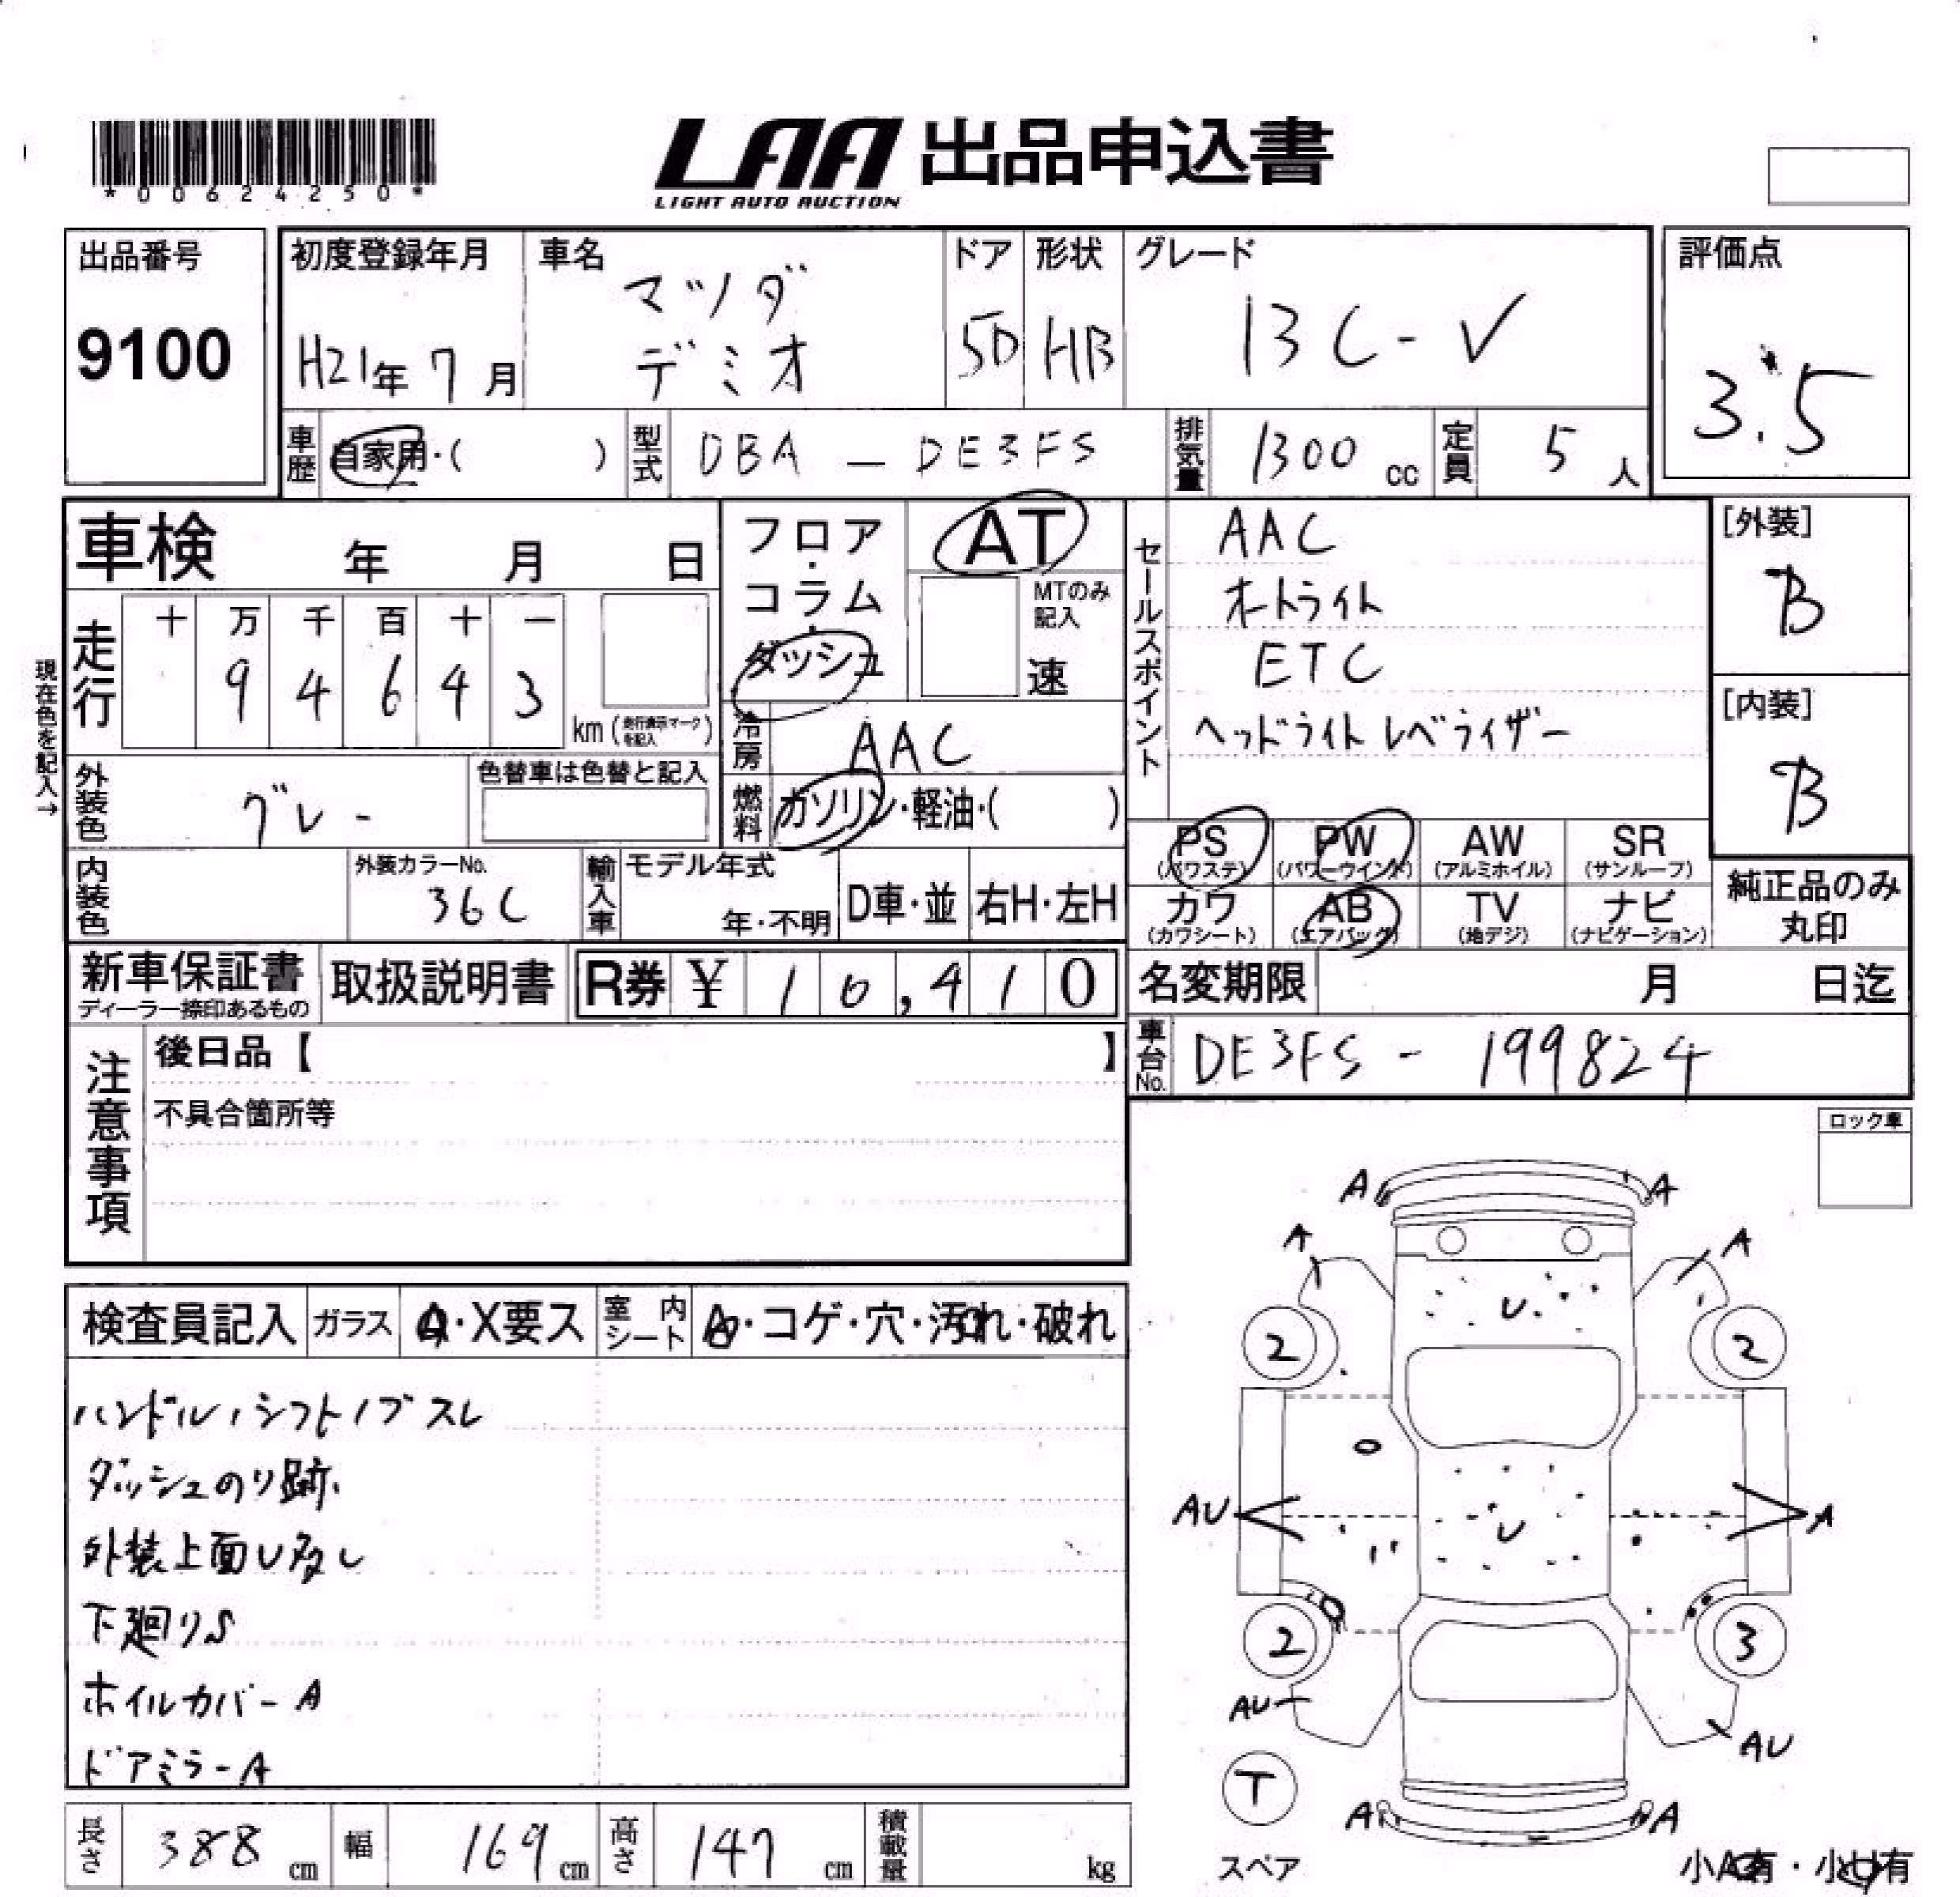 *00624250*
LAA 出品申込書
LIGHT AUTO AUCTION
出品番号
9100
初度登録年月
H21年 7月
車名
マツダ
デミオ
ドア
5D
形状
HB
グレード
13C-V
評価点
3.5
車歴
自家用・( )
型式
DBA - DE3FS
排気量
1300 cc
定員
5 人
車検 年 月 日
フロア・コラム・ダッシュ
AT
MTのみ記入
速
セールスポイント
AAC
オートライト
ETC
ヘッドライトレベライザー
[外装]
B
[内装]
B
現在色を記入→
走行
十 万 千 百 十 一
9 4 6 4 3
km (走行表示マークを記入)
冷房
AAC
外装色
グレー
色替車は色替と記入
燃料
ガソリン・軽油・( )
PS (パワステ)
PW (パワーウインド)
AW (アルミホイル)
SR (サンルーフ)
カワ (カワシート)
AB (エアバッグ)
TV (地デジ)
ナビ (ナビゲーション)
純正品のみ丸印
内装色
外装カラーNo.
36C
輸入車
モデル年式
年・不明
D車・並
右H・左H
新車保証書
ディーラー捺印あるもの
取扱説明書
R券 ¥ 10,410
名変期限 月 日迄
車台No.
DE3FS - 199824
注意事項
後日品【 】
不具合箇所等
ロック車
検査員記入
ガラス
A・X要ス
室内シート
A・コゲ・穴・汚れ・破れ
ハンドル、シフトノブスレ
ダッシュのり跡
外装上面U多し
下廻りS
ホイルカバーA
ドアミラーA
A A
A A
U
2 2
AU A
U
2 3
AU AU
T
スペア
A A
小A有・小U有
長さ 388 cm
幅 169 cm
高さ 147 cm
積載量 kg